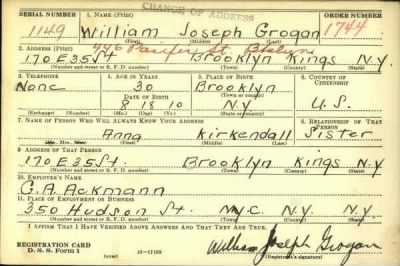 CHANGE OF ADDRESS
SERIAL NUMBER 1. NAME (Print) ORDER NUMBER
1149 William Joseph Grogan 1744
(First) (Middle) (Last)
St. Bklyn
2. ADDRESS (Print)
170 E 35 St Brooklyn Kings N.Y.
(Number and street or R. F. D. number) (Town) (County) (State)
3. TELEPHONE 4. AGE IN YEARS 5. PLACE OF BIRTH 6. COUNTRY OF CITIZENSHIP
None 30 Brooklyn
DATE OF BIRTH (Town or county)
8 18 10 N.Y. U.S.
(Exchange) (Number) (Mo.) (Day) (Yr.) (State or country)
7. NAME OF PERSON WHO WILL ALWAYS KNOW YOUR ADDRESS 8. RELATIONSHIP OF THAT PERSON
Anna Kirkendall Sister
(Mr., Mrs., Miss) (First) (Middle) (Last)
9. ADDRESS OF THAT PERSON
170 E 35 St. Brooklyn Kings N.Y.
(Number and street or R. F. D. number) (Town) (County) (State)
10. EMPLOYER'S NAME
C. A. Ackmann
11. PLACE OF EMPLOYMENT OR BUSINESS
350 Hudson St. N.Y.C. N.Y. N.Y.
(Number and street or R. F. D. number) (Town) (County) (State)
I AFFIRM THAT I HAVE VERIFIED ABOVE ANSWERS AND THAT THEY ARE TRUE.
REGISTRATION CARD
D. S. S. Form 1 (over) 16-17105 William Joseph Grogan
(Registrant's signature)